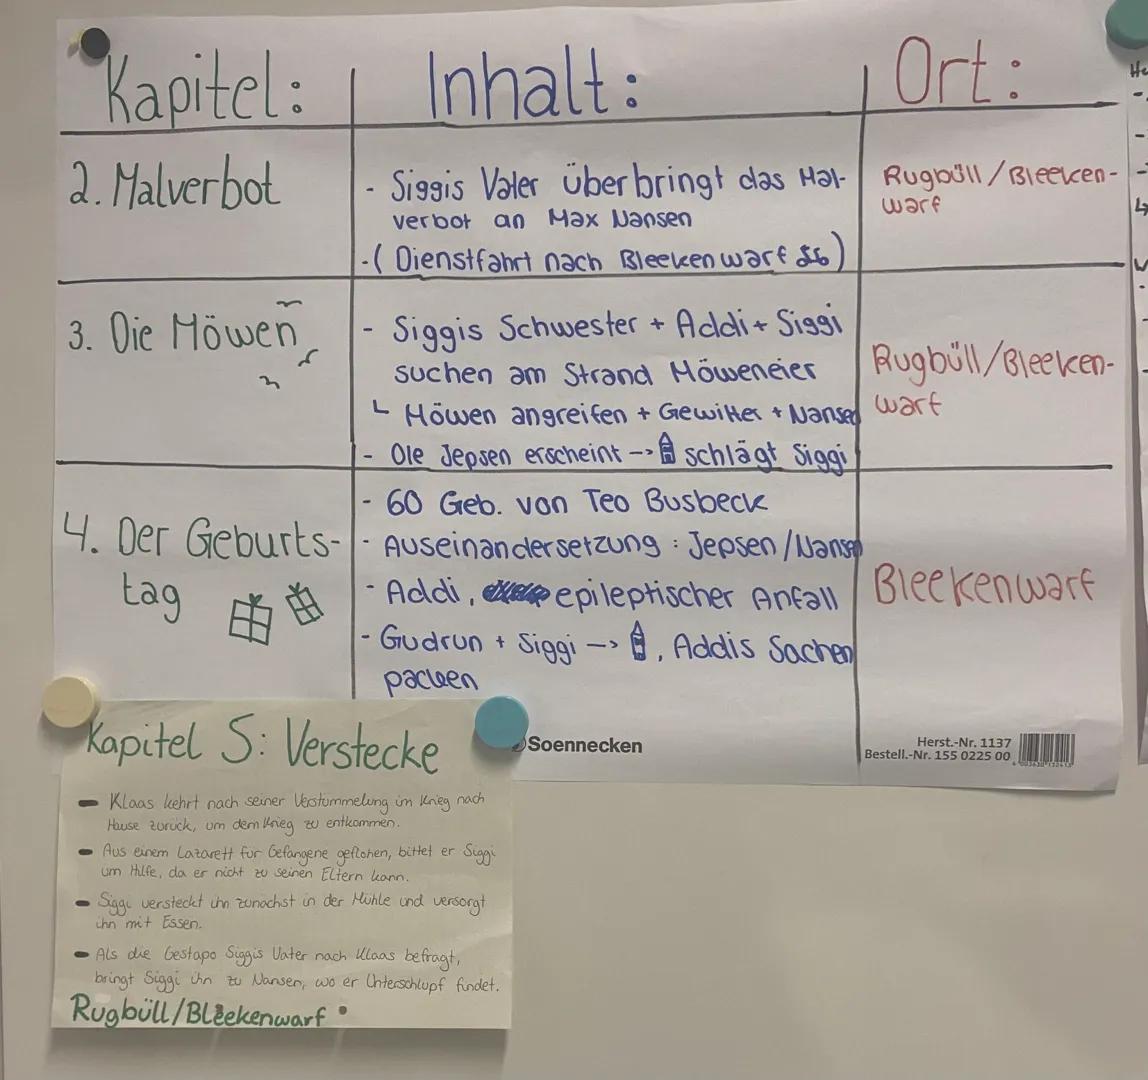 Kapitel: Inhalt: Ort:
2. Malverbot
- Siggis Vater überbringt das Mal-
verbot an Max Nansen
- ( Dienstfahrt nach Bleekenwarf )
Rugbüll/Bleeken-
warf
3. Die Möwen
- Siggis Schwester + Addi + Siggi
suchen am Strand Möweneier
↳ Möwen angreifen + Gewitter + Nansen
- Ole Jepsen erscheint --> schlägt Siggi
Rugbüll/Bleeken-
warf
4. Der Geburts-
tag
- 60 Geb. von Teo Busbeck
- Auseinandersetzung : Jepsen/Nansen
- Addi, epileptischer Anfall
- Gudrun + Siggi --> , Addis Sachen
packen
Bleekenwarf
Soennecken
Herst.-Nr. 1137
Bestell.-Nr. 155 0225 00
Kapitel 5: Verstecke
- Klaas kehrt nach seiner Verstümmelung im Krieg nach
Hause zurück, um dem Krieg zu entkommen.
- Aus einem Lazarett für Gefangene geflohen, bittet er Siggi
um Hilfe, da er nicht zu seinen Eltern kann.
- Siggi versteckt ihn zunächst in der Mühle und versorgt
ihn mit Essen.
- Als die Gestapo Siggis Vater nach Klaas befragt,
bringt Siggi ihn zu Nansen, wo er Unterschlupf findet.
Rugbüll/Bleekenwarf